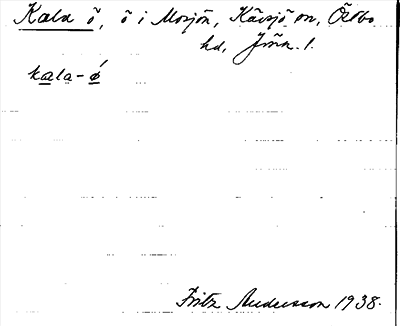 Kala ö, ö i Morjön, Kävsjö sn, Östbo
hd, Jönk. l.
kala-ǿ
Fritz Andersson 1938.